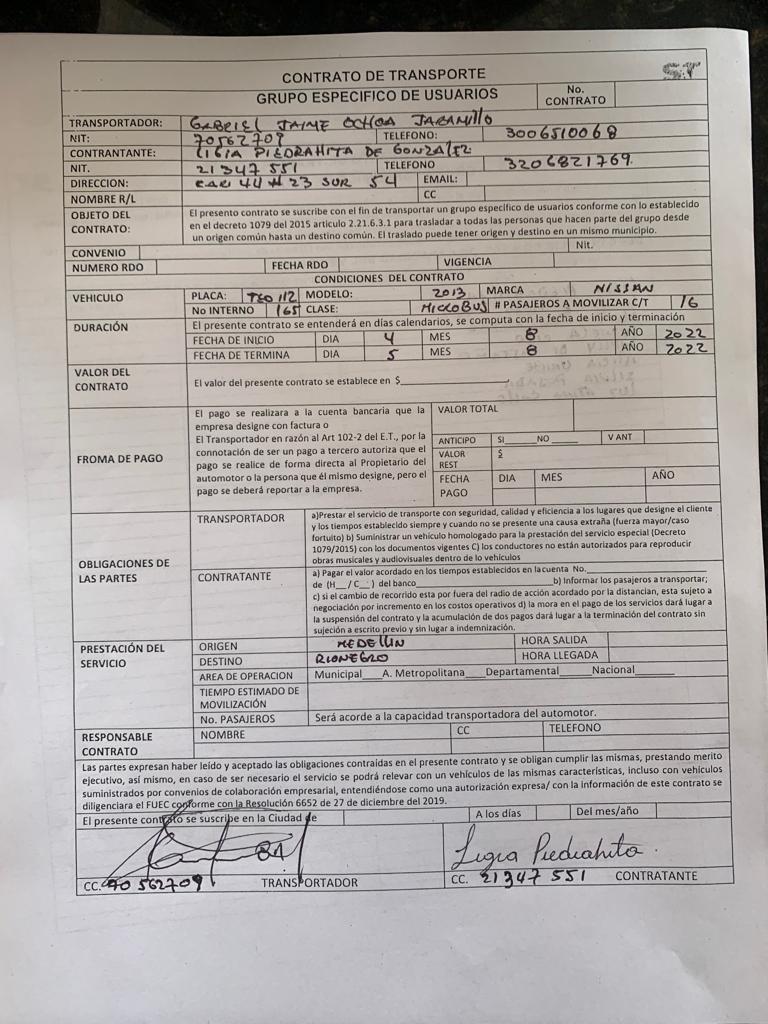 CONTRATO DE TRANSPORTE
GRUPO ESPECIFICO DE USUARIOS
No. CONTRATO
TRANSPORTADOR: GABRIEL JAIME OCHOA JARAMILLO
NIT: 70562709 TELEFONO: 3006510068
CONTRATANTE: LIGIA PIEDRAHITA DE GONZALEZ
NIT. 21347 551 TELEFONO 3206821769.
DIRECCION: 44 # 23 SUR 54 EMAIL:
NOMBRE R/L CC
OBJETO DEL CONTRATO:
El presento contrato se suscribe con el fin de transportar un grupo específico de usuarios conforme con lo establecido
en el decreto 1079 del 2015 articulo 2.21.6.3.1 para trasladar a todas las personas que hacen parte del grupo desde
un origen común hasta un destino común. El traslado puede tener origen y destino en un mismo municipio.
CONVENIO Nit.
NUMERO RDO FECHA RDO VIGENCIA
CONDICIONES DEL CONTRATO
VEHICULO PLACA: 112 MODELO: 2013 MARCA NISSAN
No INTERNO 165 CLASE: MICROBUS # PASAJEROS A MOVILIZAR C/T 16
DURACIÓN El presente contrato se entenderá en días calendarios, se computa con la fecha de inicio y terminación
FECHA DE INICIO DIA 4 MES 8 AÑO 2022
FECHA DE TERMINA DIA 5 MES 8 AÑO 2022
VALOR DEL CONTRATO El valor del presente contrato se establece en $
FROMA DE PAGO
El pago se realizara a la cuenta bancaria que la
empresa designe con factura o
El Transportador en razón al Art 102-2 del E.T., por la
connotación de ser un pago a tercero autoriza que el
pago se realice de forma directa al Propietario del
automotor o la persona que él mismo designe, pero el
pago se deberá reportar a la empresa.
VALOR TOTAL
ANTICIPO SI NO V ANT
VALOR REST $
FECHA PAGO DIA MES AÑO
OBLIGACIONES DE LAS PARTES
TRANSPORTADOR
a)Prestar el servicio de transporte con seguridad, calidad y eficiencia a los lugares que designe el cliente
y los tiempos establecido siempre y cuando no se presente una causa extraña (fuerza mayor/caso
fortuito) b) Suministrar un vehículo homologado para la prestación del servicio especial (Decreto
1079/2015) con los documentos vigentes C) los conductores no están autorizados para reproducir
obras musicales y audiovisuales dentro de lo vehículos
CONTRATANTE
a) Pagar el valor acordado en los tiempos establecidos en la cuenta No.
de (H__/ C__) del banco b) Informar los pasajeros a transportar;
c) si el cambio de recorrido esta por fuera del radio de acción acordado por la distancian, esta sujeto a
negociación por incremento en los costos operativos d) la mora en el pago de los servicios dará lugar a
la suspensión del contrato y la acumulación de dos pagos dará lugar a la terminación del contrato sin
sujeción a escrito previo y sin lugar a indemnización.
PRESTACIÓN DEL SERVICIO
ORIGEN MEDELLIN HORA SALIDA
DESTINO RIONEGRO HORA LLEGADA
AREA DE OPERACION Municipal____A. Metropolitana____Departamental____Nacional____
TIEMPO ESTIMADO DE MOVILIZACIÓN
No. PASAJEROS Será acorde a la capacidad transportadora del automotor.
RESPONSABLE CONTRATO NOMBRE CC TELEFONO
Las partes expresan haber leído y aceptado las obligaciones contraídas en el presente contrato y se obligan cumplir las mismas, prestando merito
ejecutivo, así mismo, en caso de ser necesario el servicio se podrá relevar con un vehículos de las mismas características, incluso con vehículos
suministrados por convenios de colaboración empresarial, entendiéndose como una autorización expresa/ con la información de este contrato se
diligenciara el FUEC conforme con la Resolución 6652 de 27 de diciembre del 2019.
El presente contrato se suscribe en la Ciudad de A los días Del mes/año
Ligia Piedrahita.
CC. 70 562709 TRANSPORTADOR CC. 21347 551 CONTRATANTE